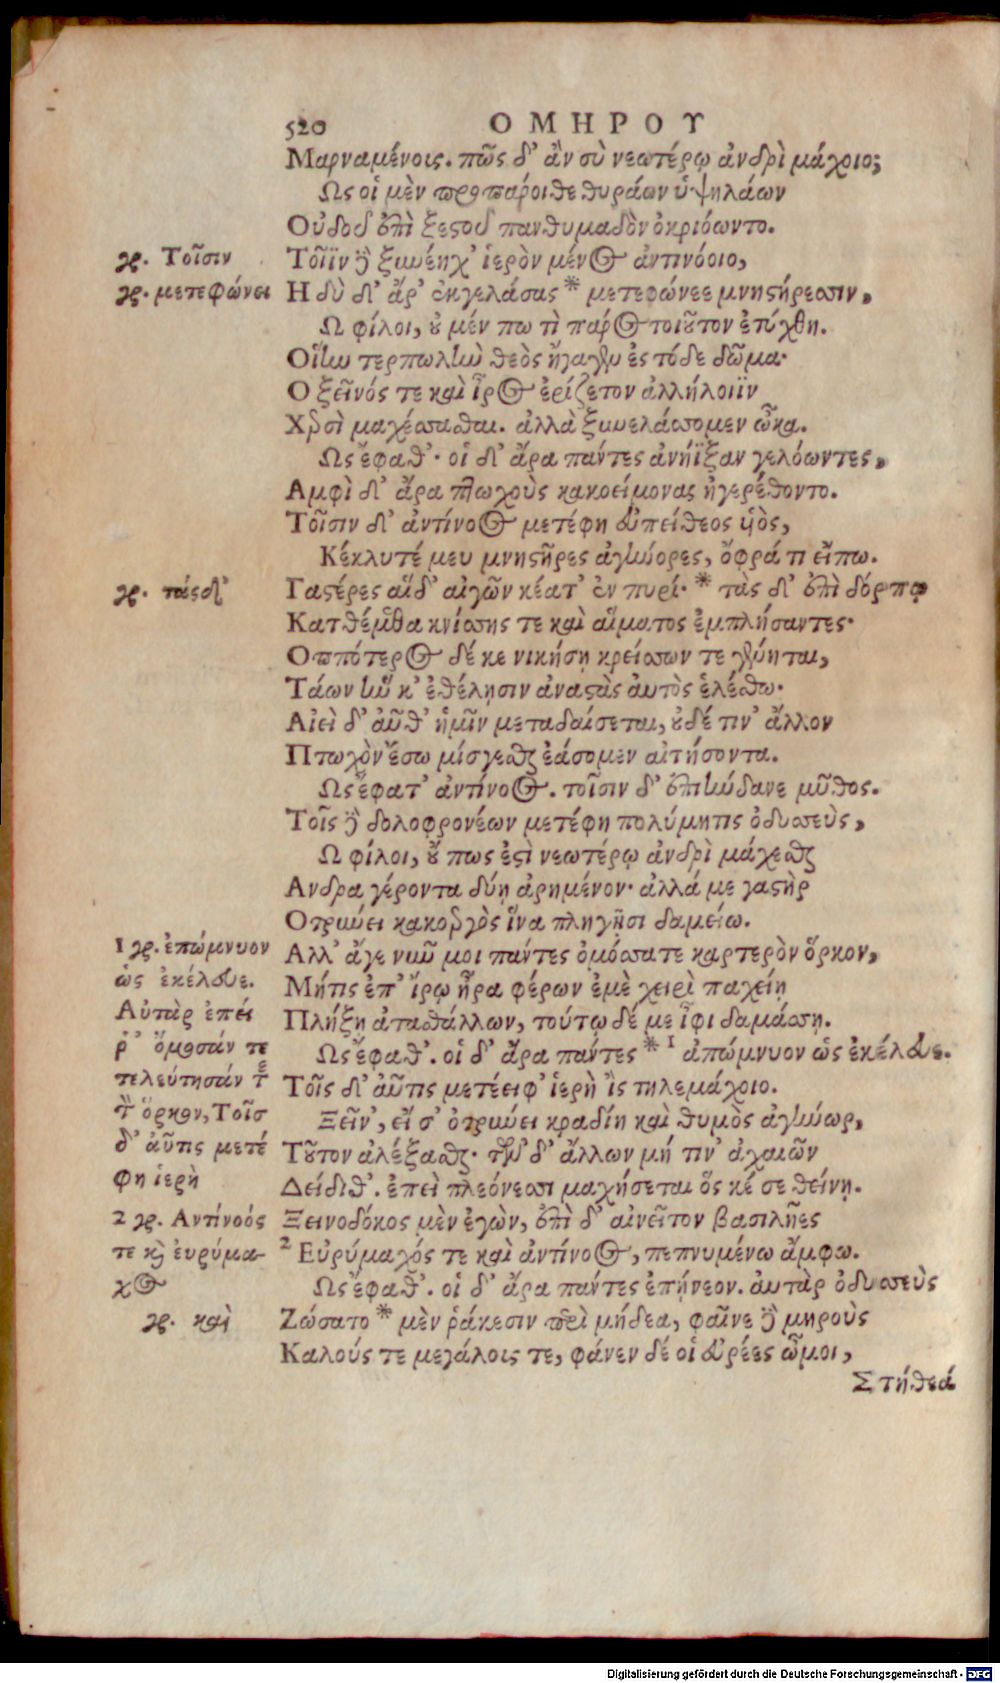 520 ΟΜΗΡΟΥ
Μαρναμένοις. πῶς δ' ἂν σὺ νεωτέρῳ ἀνδρὶ μάχοιο;
Ως οἱ μὲν προπάροιθε θυράων ὑψηλάων
Οὐδοῦ ἐπὶ ξεστοῦ πανθυμαδὸν ὀκριόωντο.
γρ. Τοῖσιν
Τοῖϊν δὲ ξυνέηχ' ἱερὸν μένος ἀντινόοιο,
γρ. μετεφώνει
Η δὺ δ' ἄρ' ἐκγελάσας * μετεφώνεε μνηστήρεσσιν,
Ω φίλοι, οὐ μέν πω τὶ πάρος τοιοῦτον ἐτύχθη.
Οἵην τερπωλὴν θεὸς ἤγαγεν ἐς τόδε δῶμα·
Ο ξεῖνός τε καὶ ἶρος ἐρίζετον ἀλλήλοιϊν
Χερσὶ μαχέσσασθαι. ἀλλὰ ξυνελάσσομεν ὦκα.
Ως ἔφαθ'· οἱ δ' ἄρα πάντες ἀνήϊξαν γελόωντες,
Αμφὶ δ' ἄρα πτωχοὺς κακοείμονας ἠγερέθοντο.
Τοῖσιν δ' ἀντίνοος μετέφη εὐπείθεος υἱὸς,
Κέκλυτέ μευ μνηστῆρες ἀγήνορες, ὄφρά τι εἴπω.
γρ. τάςδ'
Γαστέρες αἵδ' αἰγῶν κέατ' ἐν πυρί· * τὰς δ' ἐπὶ δόρπῳ
Κατθέμεθα κνίσσης τε καὶ αἵματος ἐμπλήσαντες·
Οππότερος δέ κε νικήσῃ κρείσσων τε γένηται,
Τάων ἥν κ' ἐθέλῃσιν ἀναστὰς αὐτὸς ἑλέσθω·
Αἰεὶ δ' αὖθ' ἡμῖν μεταδαίσεται, οὐδέ τιν' ἄλλον
Πτωχὸν ἔσω μίσγεσθαι ἐάσομεν αἰτήσοντα.
Ως ἔφατ' ἀντίνοος. τοῖσιν δ' ἐπιήνδανε μῦθος.
Τοῖς δὲ δολοφρονέων μετέφη πολύμητις ὀδυσσεὺς,
Ω φίλοι, οὔ πως ἐστὶ νεωτέρῳ ἀνδρὶ μάχεσθαι
Ανδρα γέροντα δύῃ ἀρημένον· ἀλλά με γαστὴρ
Οτρύνει κακοεργὸς ἵνα πληγῇσι δαμείω.
1 γρ. ἐπώμνυον
ὡς ἐκέλευε.
Αὐτὰρ ἐπεί
ῥ' ὄμοσάν τε
τελεύτησάν τε
τὸν ὅρκον, Τοῖσ
δ' αὖτις μετέ
φη ἱερὴ
Αλλ' ἄγε νῦν μοι πάντες ὀμόσσατε καρτερὸν ὅρκον,
Μήτις ἐπ' ἴρῳ ἦρα φέρων ἐμὲ χειρὶ παχείῃ
Πλήξῃ ἀτασθάλλων, τούτῳ δέ με ἶφι δαμάσσῃ.
Ως ἔφαθ'. οἱ δ' ἄρα πάντες * 1 ἀπώμνυον ὡς ἐκέλευε.
Τοῖς δ' αὖτις μετέειφ' ἱερὴ ἲς τηλεμάχοιο.
Ξεῖν', εἴ σ' ὀτρύνει κραδίη καὶ θυμὸς ἀγήνωρ,
Τοῦτον ἀλέξασθαι· τῶν δ' ἄλλων μή τιν' ἀχαιῶν
Δείδιθ'. ἐπεὶ πλεόνεσσι μαχήσεται ὅς κέ σε θείνῃ.
2 γρ. Αντίνοός
τε καὶ εὐρύμα-
χος
Ξεινοδόκος μὲν ἐγὼν, ἐπὶ δ' αἰνεῖτον βασιλῆες
2 Εὐρύμαχός τε καὶ ἀντίνοος, πεπνυμένω ἄμφω.
Ως ἔφαθ'. οἱ δ' ἄρα πάντες ἐπῄνεον. αὐτὰρ ὀδυσσεὺς
γρ. καὶ
Ζώσατο * μὲν ῥάκεσιν περὶ μήδεα, φαῖνε δὲ μηροὺς
Καλούς τε μεγάλοις τε, φάνεν δέ οἱ εὐρέες ὦμοι,
Στήθεά
Digitalisierung gefördert durch die Deutsche Forschungsgemeinschaft - DFG